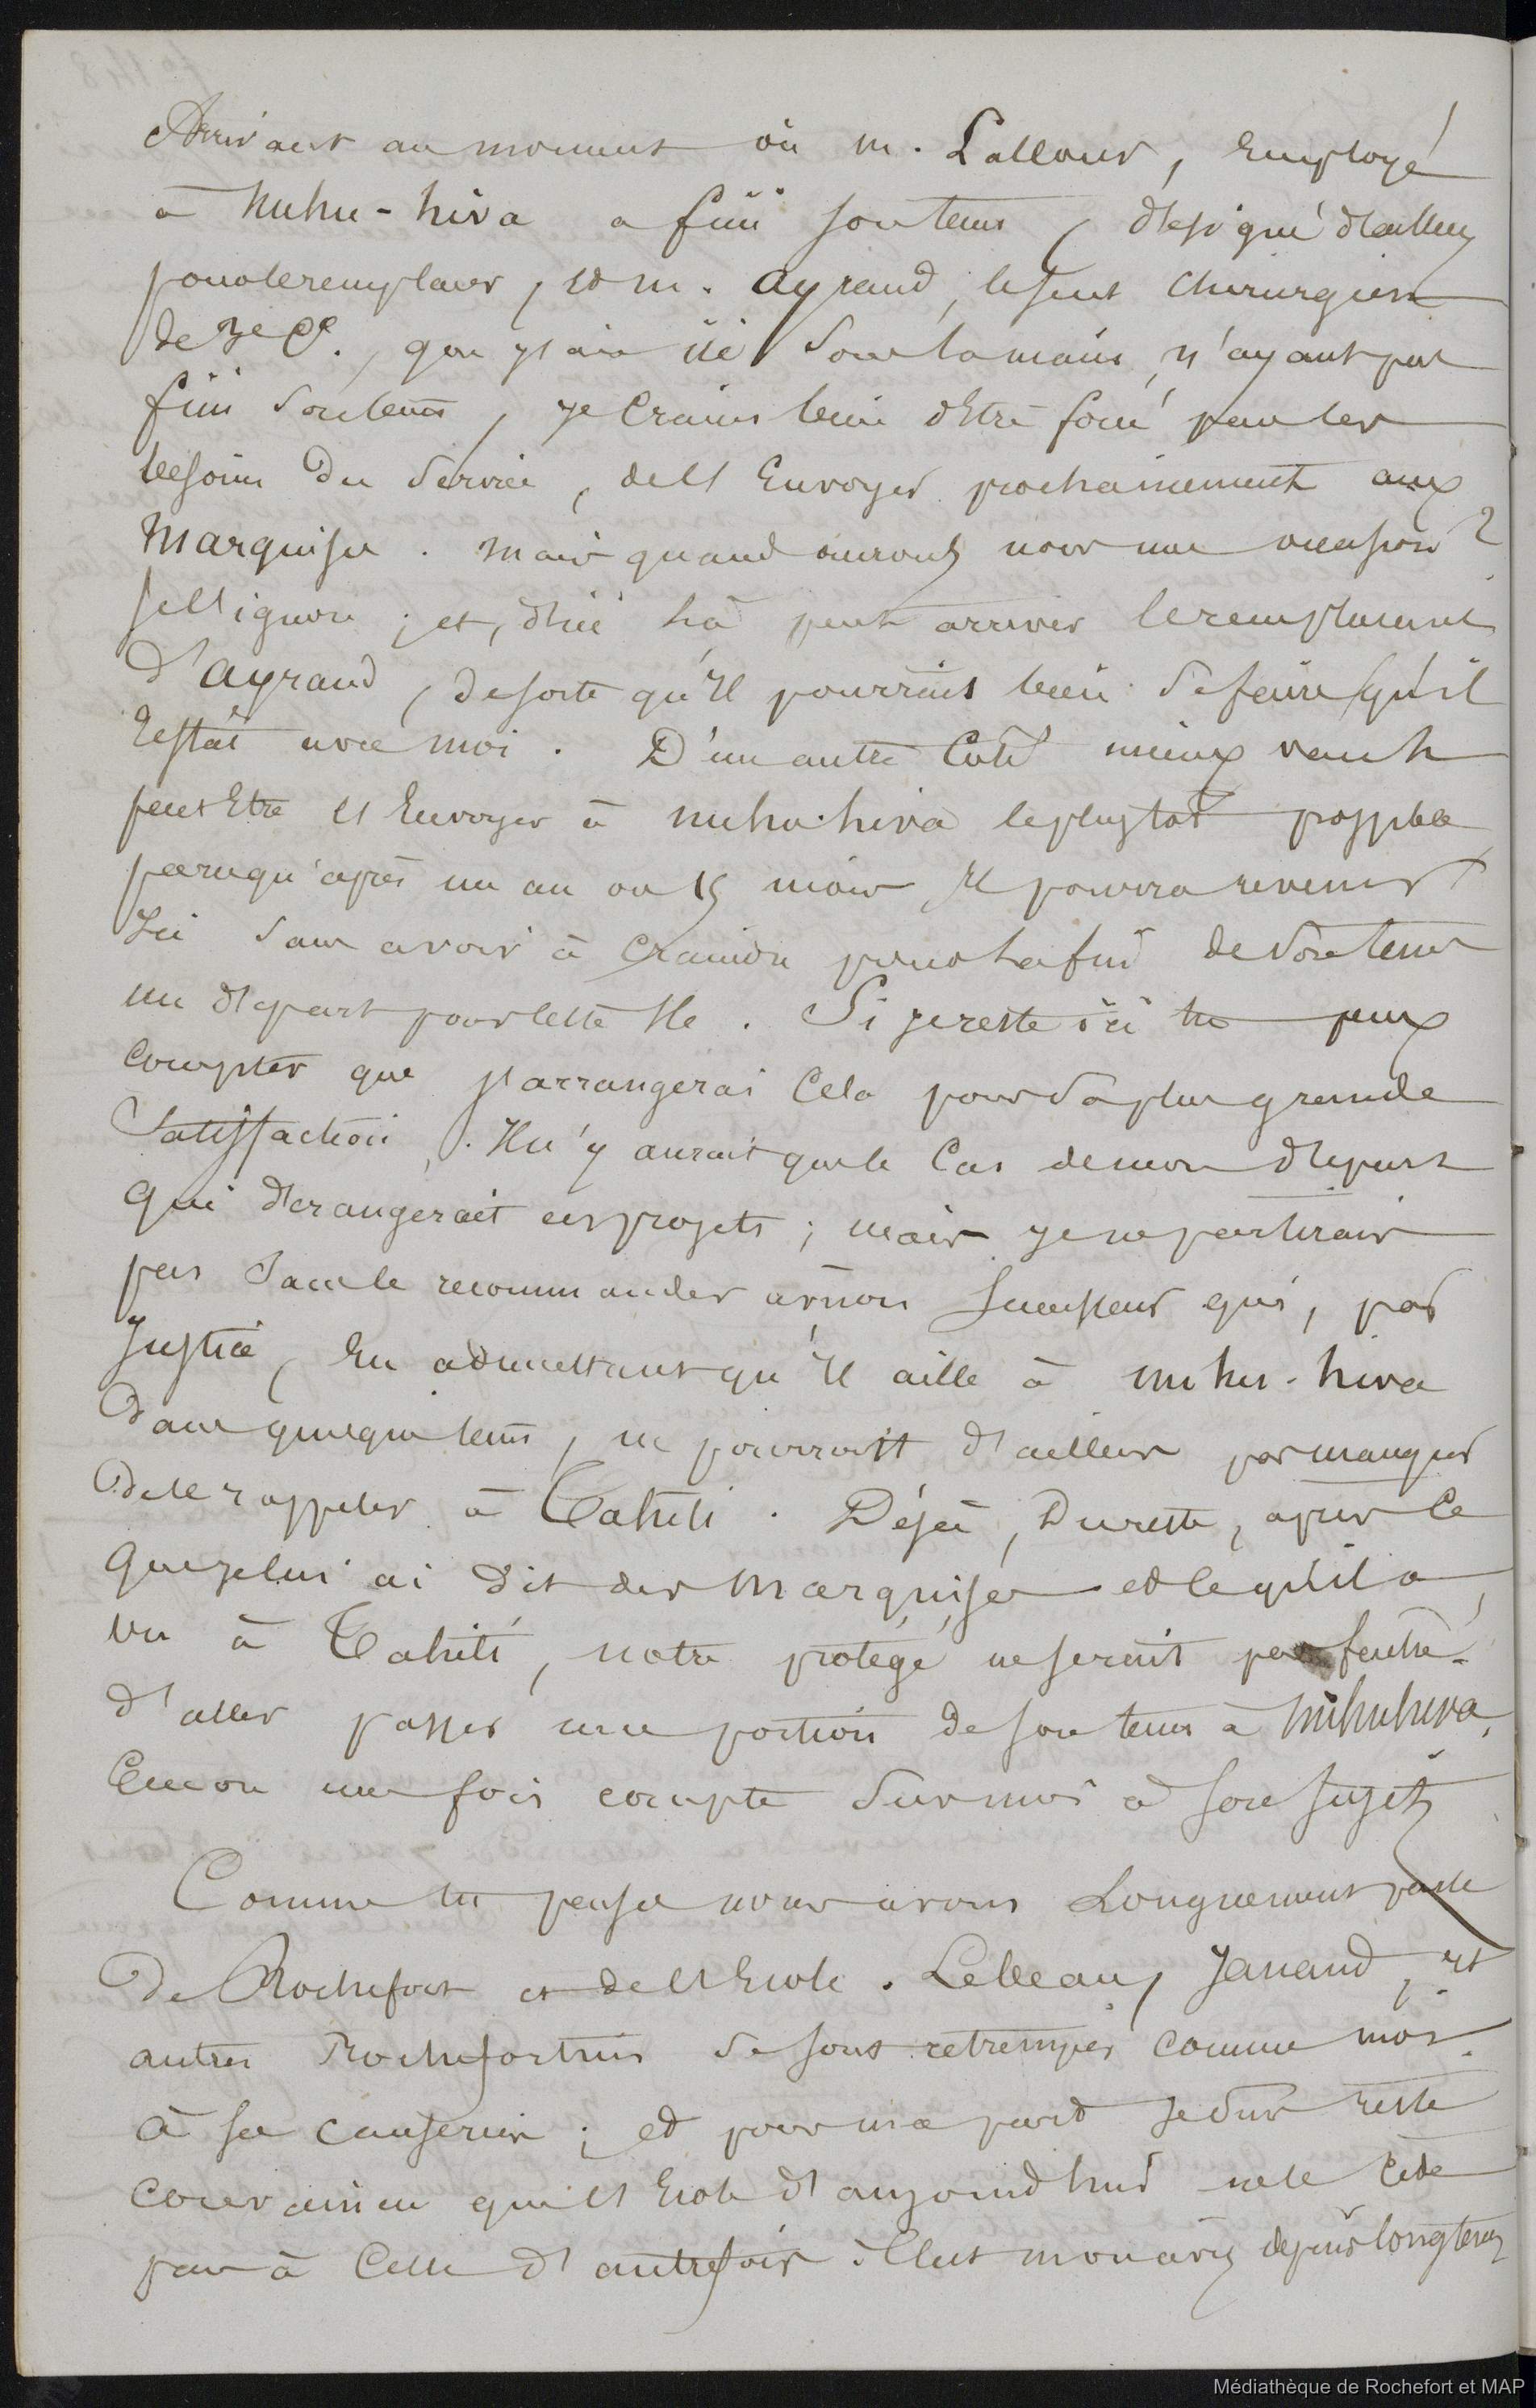 Arrivant au moment où m. Lallour, Employé
à nuhu-hiva a fini son tems, désigné d'ailleurs
pour le remplacer, et m. ayraud, le seul chirurgien
de 3e Cl., que j'aie ici sous la main, n'ayant pas
fini son tems, je crains bien d'être forcé par les
besoins du service, de l'Envoyer prochainement aux
Marquises. Mais quand aurons nous une occasion?
je l'ignore; et, d'ici là peut arriver le remplacant
d'ayraud, de sorte qu'Il pourrait bien se faire qu'il
restât avec moi. D'un autre Coté mieux vaut
peut Etre l'Envoyer à nuhu.hiva le plustot possible
parcequ'après un an ou 15 mois, Il pourra revenir
Ici sans avoir à craindre pour la fin de son tems
un départ pour cette Ile. Si je reste ici tu peux
compter que j'arrangerai Cela pour sa plus grande
Satisfaction. Il n'y aurait que le Cas de mon départ
qui dérangerait ces projets; mais je ne partirais
pas sans le recommander à mon successeur qui, par
Justice, En admettant qu'Il aille à nuhu-hiva
dans quelque tems, ne pourrait d'ailleurs pas manquer
de le rappeler à Tahiti. Déjà, Du reste, après ce
que je lui ai dit des Marquises et ce qu'il a
vu à Tahiti, notre protégé ne serait pas faché
d'aller passer une portion de son tems à nuhuhiva,
Encore une fois compte sur moi à son sujet
Comme tu penses nous avons Longuement parlé
De Rochefort et de l'Ecole. Lelleau, Janaud, et
autres Rochefortins se sont retrempés comme moi
à sa causerie; et pour ma part je suis resté
convaincu que l'Ecole d'aujourd'hui ne le Cède
pas à Celle d'autrefois. C'est mon avis depuis longtems